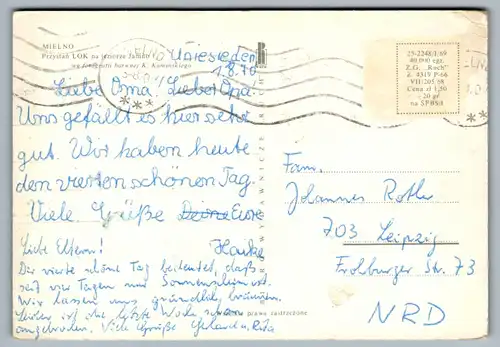 MIELNO
Przystań LOK na jeziorze Jamno
wg fotografii barwnej K. Kamińskiego
Unieście den
1.8.70
Liebe Oma! Lieber Opa!
Uns gefällt es hier sehr
gut. Wir haben heute
den vierten schönen Tag.
Viele Grüße Deine Eure
Hauke
Liebe Eltern!
Der vierte schöne Tag bedeutet, daß
seit vier Tagen nur Sonnenschein ist.
Wir lassen uns gründlich bräunen.
Leider ist die letzte Woche schon
angebrochen. Viele Grüße Gerhard u. Rita
25-2248/I/69
40.000 egz.
Z.G. „Ruch"
Z. 4319 P-66
VII/205/68
Cena zł 1,50
- 20 gr
na SFOS
Fam.
Johannes Roth
703 Leipzig
Frohburger Str. 73
NRD
prawa zastrzeżone